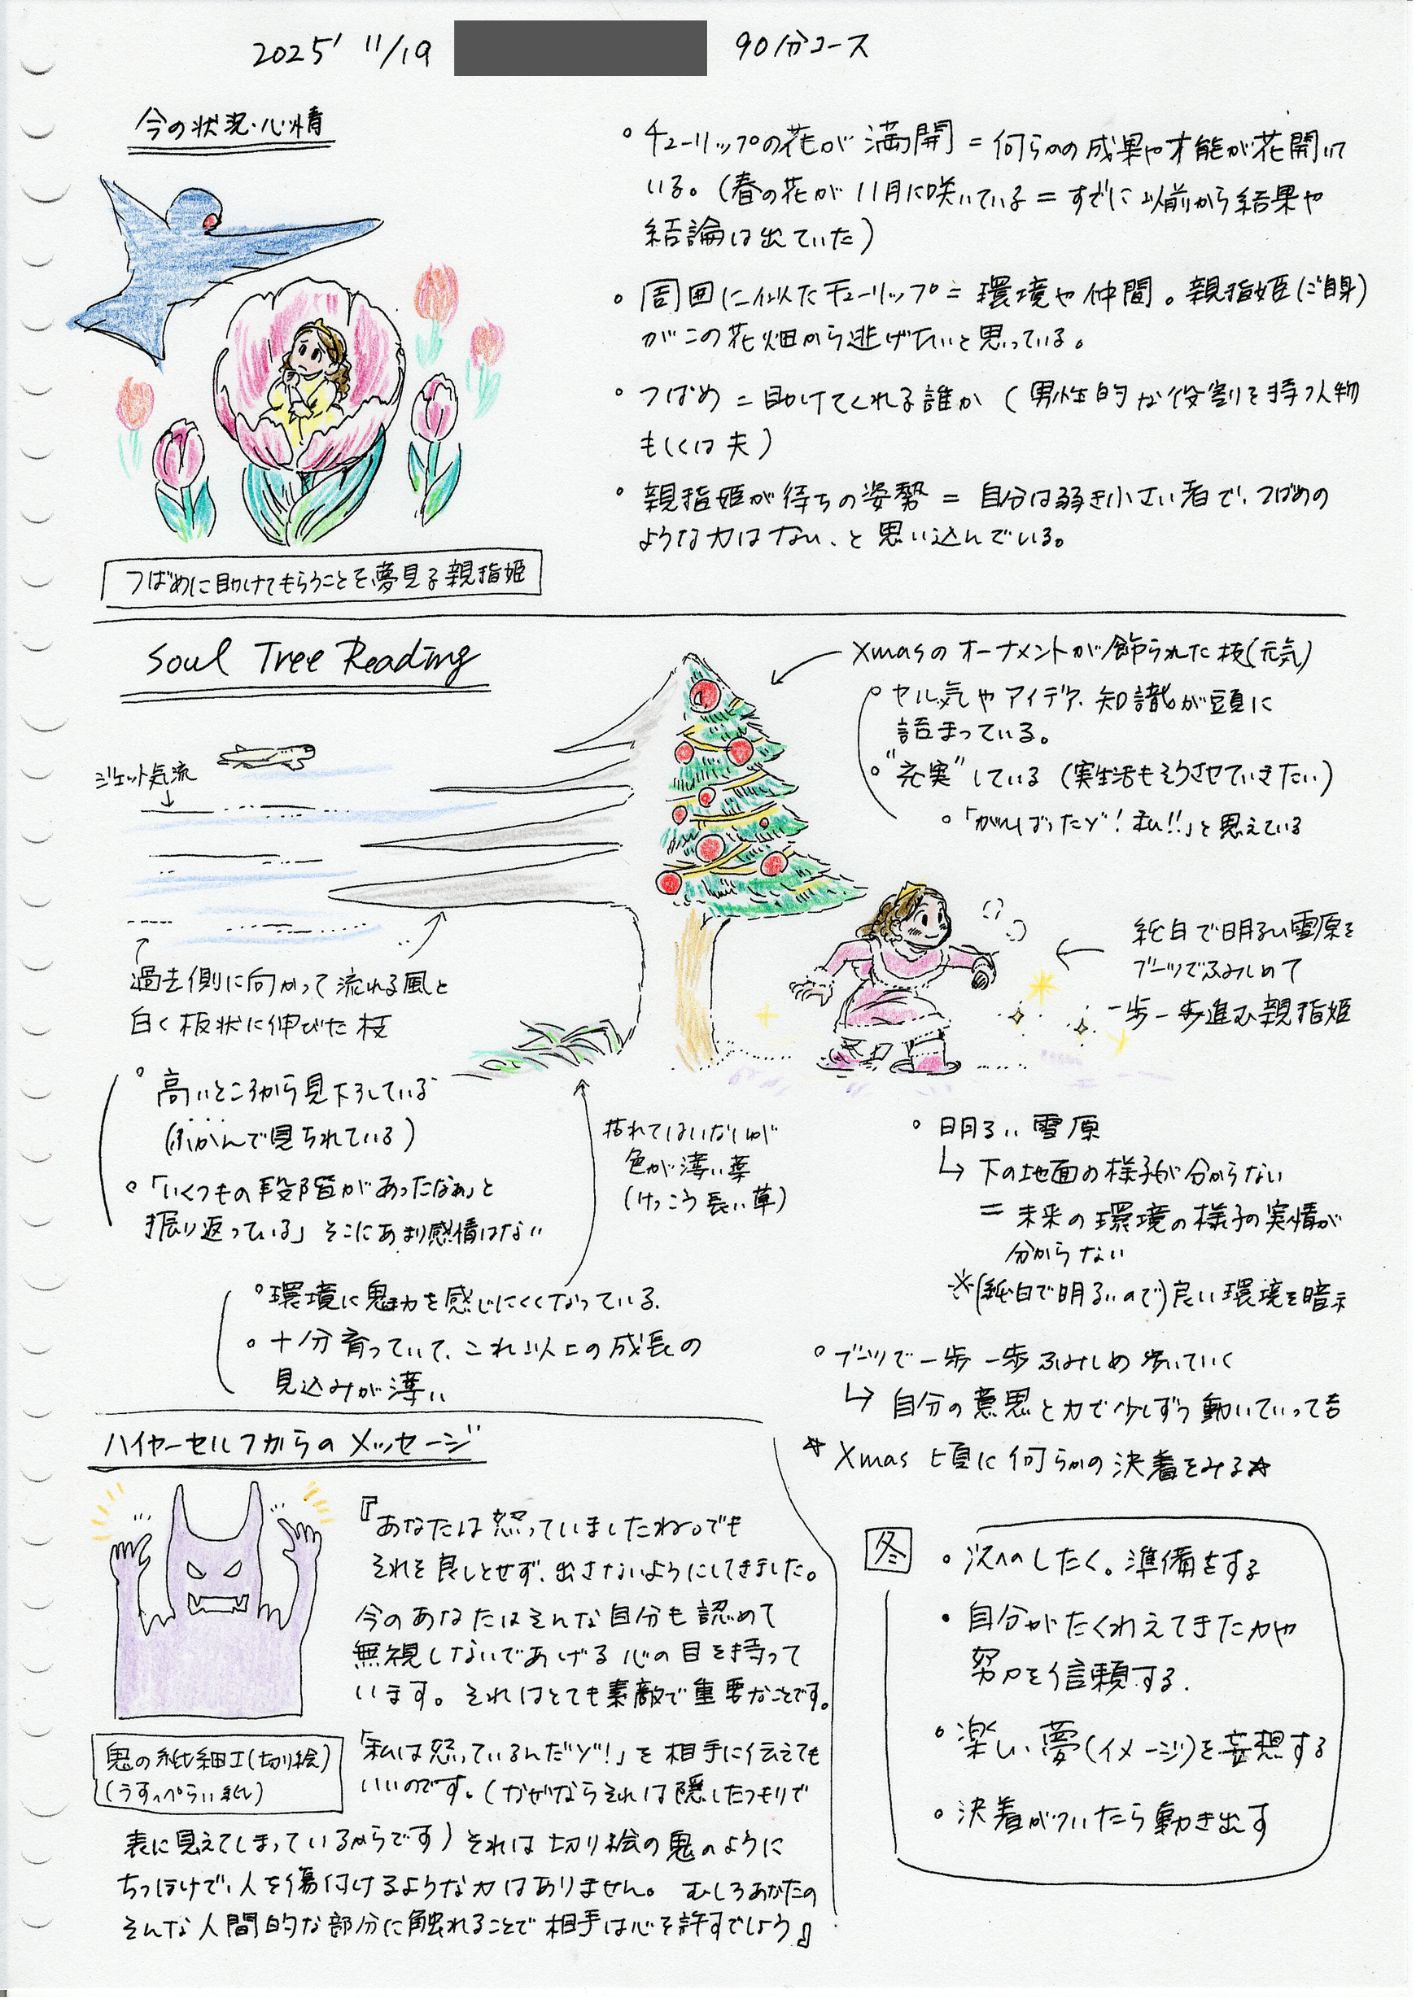 2025' 11/19
90分コース
今の状況・心情
つばめに助けてもらうことを夢見る親指姫
。チューリップの花が満開=何らかの成果や才能が花開いて
いる。(春の花が11月に咲いている=すでに以前から結果や
結論は出ていた)
。周囲に似たチューリップ=環境や仲間。親指姫(ご自身)
がこの花畑から逃げたいと思っている。
。つばめ=助けてくれる誰か(男性的な役割を持つ人物
もしくは夫)
。親指姫が待ちの姿勢=自分は弱き小さい者で、つばめの
ような力はない、と思い込んでいる。
Soul Tree Reading
ジェット気流
過去側に向かって流れる風と
白く板状に伸びた枝
。高いところから見下ろしている
(ふかんで見られている)
。「いくつもの段階があったなぁ」と
振り返っている」そこにあまり感情はない
枯れてはいないが
色が薄い葉
(けっこう長い草)
。環境に魅力を感じにくくなっている。
。十分育っていて、これ以上の成長の
見込みが薄い
Xmasのオーナメントが飾られた枝(元気)
。ヤル気やアイデア、知識が頭に
詰まっている。
。"充実"している(実生活もそうさせていきたい)
。「がんばったゾ!私!!」と思えている
純白で明るい雪原を
ブーツでふみしめて
一歩一歩進む親指姫
。明るい雪原
↳下の地面の様子が分からない
=未来の環境の様子の実情が
分からない
※(純白で明るいので)良い環境を暗示
。ブーツで一歩一歩ふみしめ歩いていく
↳自分の意思と力で少しずつ動いていって吉
☆Xmas頃に何らかの決着をみる☆
ハイヤーセルフからのメッセージ
鬼の紙細工(切り絵)
(うすっぺらい紙)
『あなたは怒っていましたね。でも
それを良しとせず、出さないようにしてきました。
今のあなたはそんな自分も認めて
無視しないであげる心の目を持って
います。それはとても素敵で重要なことです。
「私は怒っているんだゾ!」を相手に伝えても
いいのです。(なぜならそれは隠したつもりで
表に見えてしまっているからです)それは切り絵の鬼のように
ちっぽけで、人を傷付けるような力はありません。むしろあなたの
そんな人間的な部分に触れることで相手は心を許すでしょう』
冬
・次へのしたく。準備をする
・自分がたくわえてきた力や
努力を信頼する。
・楽しい夢(イメージ)を妄想する
・決着がついたら動き出す